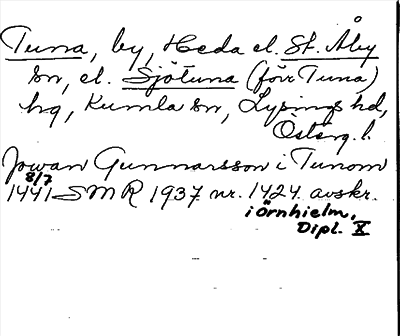 Tuna, by, Heda el. St. Åby
sn, el. Sjötuna (förr Tuna)
hg, Kumla sn, Lysings hd,
Österg. l.
Jowan Gunnarsson i Tunom
8/7
1441 SMR 1937 nr. 1424 avskr.
i Örnhielm,
Dipl. X